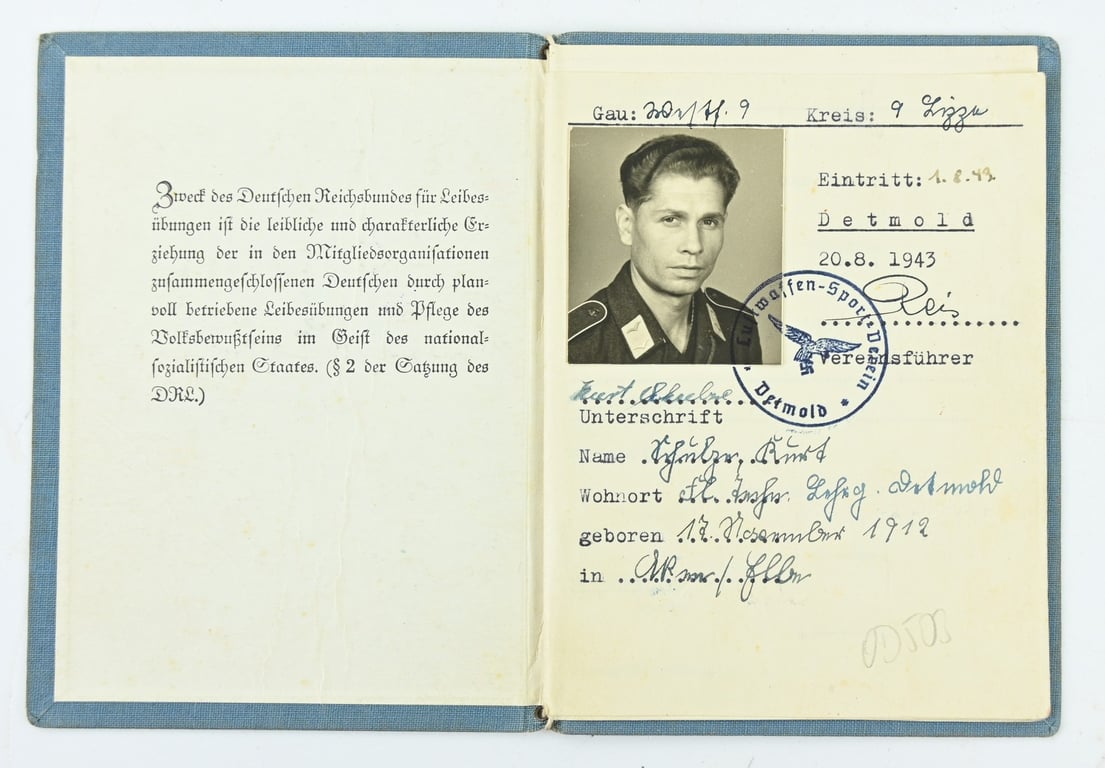 Zweck des Deutschen Reichsbundes für Leibes-
übungen ist die leibliche und charakterliche Er-
ziehung der in den Mitgliedsorganisationen
zusammengeschlossenen Deutschen durch plan-
voll betriebene Leibesübungen und Pflege des
Volksbewußtseins im Geist des national-
sozialistischen Staates. (§ 2 der Satzung des
DRL.)
Gau: Westf. 9 Kreis: 9 Lippe
Eintritt: 1.8.43
Detmold
20.8. 1943
Reis
Vereinsführer
Luftwaffen-Sport-Verein
* Detmold *
Kurt Schulze
Unterschrift
Name Schulze, Kurt
Wohnort Fl. Lehrg. Detmold
geboren 17. November 1912
in Aken / Elbe
OD503